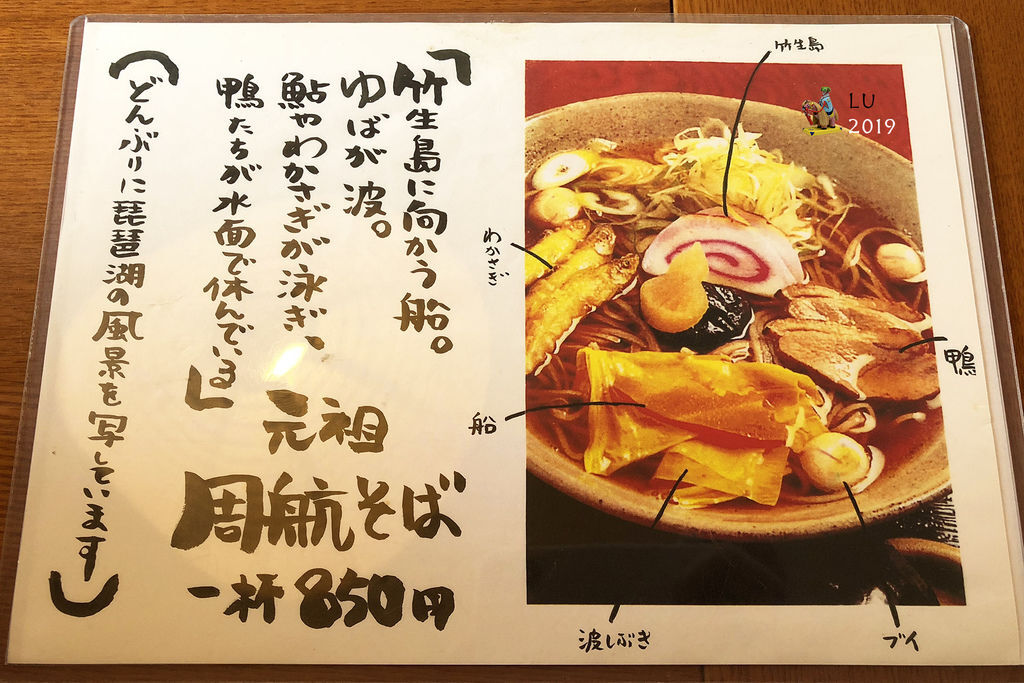 「竹生島に向かう船。
ゆばが波。
鮎やわかさぎが泳ぎ、
鴨たちが水面で休んでいる」
(どんぶりに琵琶湖の風景を写しています)
元祖
周航そば
一杯 850円
竹生島
LU
2019
わかさぎ
鴨
船
波しぶき
ブイ